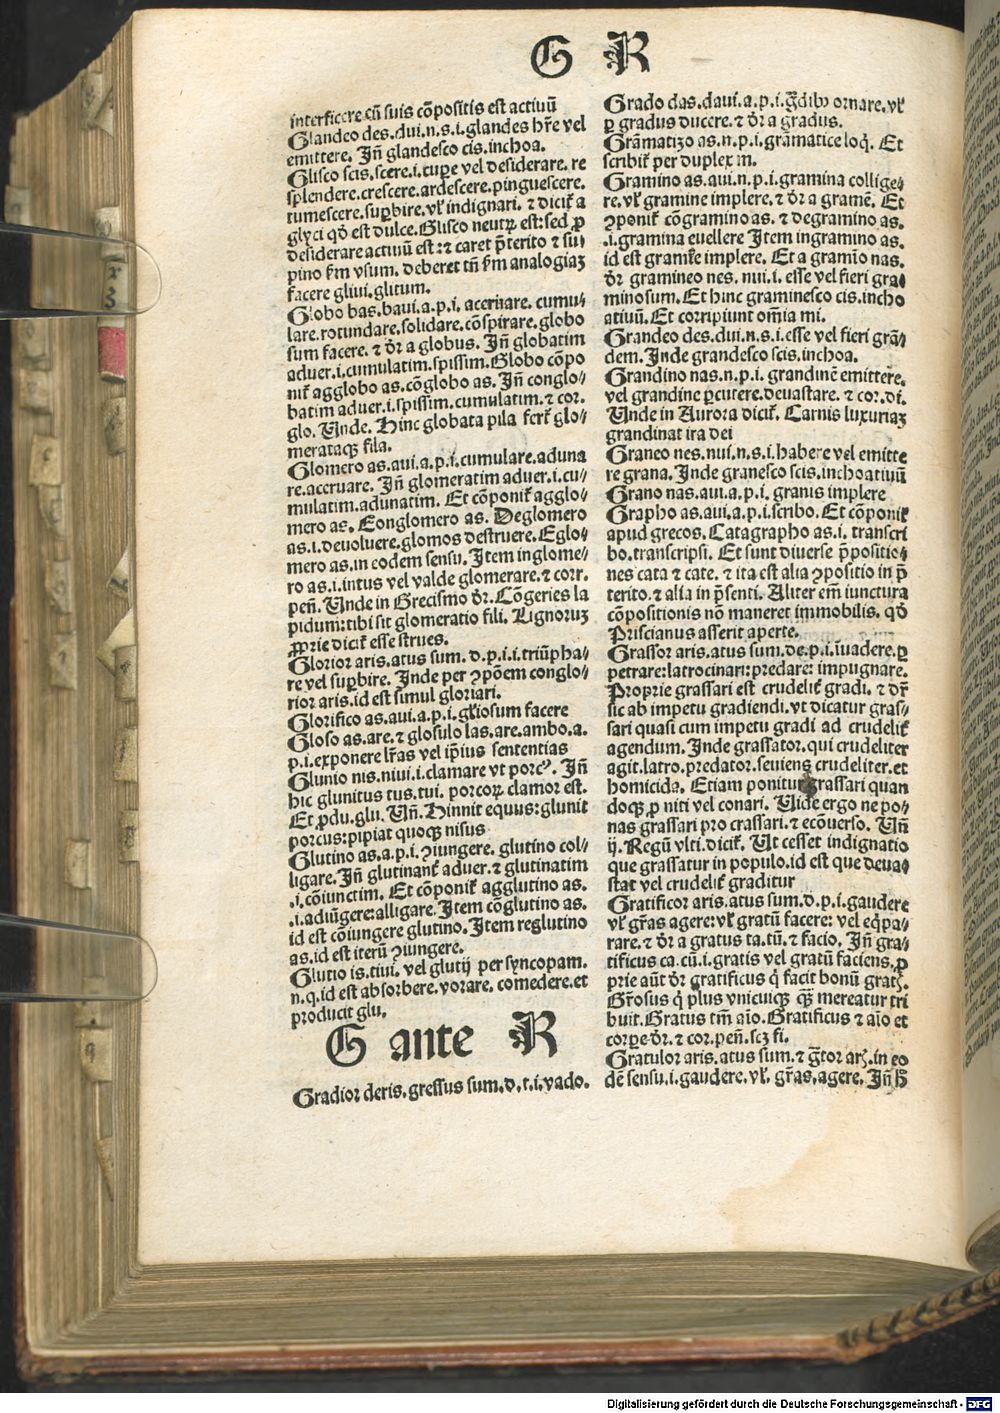 G R
interficere.cū suis cōpositis est actiuū
Glandeo des.dui.n.s.i.glandes hr̄e vel
emittere. Iñ glandesco cis.inchoa.
Glisco scis.scere.i.cupe vel desiderare.re
splendere.crescere.ardescere.pinguescere.
tumescere.supbire.vl̕ indignari. ⁊ dicit̕ a
glyci qd̕ est dulce. Glisco neutꝝ est:sed ꝓ
desiderare actiuū est:⁊ caret p̄terito ⁊ su⸗
pino ẜm vsum. deberet tn̄ ẜm analogiaꝫ
facere gliui.glitum.
Globo bas.baui.a.p.i. aceruare. cumu⸗
lare.rotundare.solidare.cōspirare.globo
sum facere. ⁊ dr̄ a globus. Iñ globatim
aduer.i.cumulatim.spissim.Globo cōpo
nit̕ agglobo as.cōglobo as. Iñ conglo⸗
batim aduer.i.spissim.cumulatim.⁊ cor.
glo. Unde. Hinc globata pila fert̕ glo⸗
merataqꝫ fila.
Glomero as.aui.a.p.i.cumulare.aduna
re.aceruare. Iñ glomeratim aduer.i.cu⸗
mulatim.adunatim. Et cōponit̕ agglo⸗
mero as. Conglomero as. Deglomero
as.i.deuoluere.glomos destruere.Eglo⸗
mero as.in eodem sensu. Item inglome⸗
ro as.i.intus vel valde glomerare.⁊ corr.
peñ. Unde in Grecismo dr̄. Cōgeries la
pidum:tibi sit glomeratio fili. Lignoruꝫ
ꝓprie dicit̕ esse strues.
Glorior aris.atus sum. d.p.i.i.triūpha⸗
re vel supbire. Inde per ꝯpōem conglo⸗
rior aris.id est simul gloriari.
Glorifico as.aui.a.p.i.gl̕iosum facere
Gloso as.are.⁊ glosulo las.are.ambo.a.
p.i.exponere lr̄as vel ip̄ius sententias
Glunio nis.niui.i.clamare vt porcꝰ. Iñ
hic glunitus tus.tui. porcoꝝ clamor est.
Et ꝓdu.glu. Uñ. Hinnit equus:glunit
porcus:pipiat quoqꝫ nisus
Glutino as.a.p.i.ꝯiungere. glutino col⸗
ligare. Iñ glutinant̕ aduer.⁊ glutinatim
.i.cōiunctim. Et cōponit̕ agglutino as.
.i.adiūgere:alligare. Item cōglutino as.
id est cōiungere glutino. Item reglutino
as.id est iterū ꝯiungere.
Glutio is.tiui. vel glutij per syncopam.
n.q.id est absorbere.vorare. comedere.et
producit glu.
G ante R
Gradior deris.gressus sum.d.t.i.vado.
Grado das.daui.a.p.i.g̃dibꝰ ornare.vl̕
ꝑ gradus ducere.⁊ dr̄ a gradus.
Grāmatizo as.n.p.i.grāmatice loq̇. Et
scribit̕ per duplex m.
Gramino as.aui.n.p.i.gramina collige⸗
re.vl̕ gramine implere.⁊ dr̄ a gramē. Et
ꝯponit̕ cōgramino as.⁊ degramino as.
.i.gramina euellere Item ingramino as.
id est gramīe implere. Et a gramīo nas.
dr̄ gramineo nes. nui.i. esse vel fieri gra⸗
minosum. Et hinc graminesco cis.incho
atiuū. Et corripiunt om̄ia mi.
Grandeo des.dui.n.s.i.esse vel fieri grā⸗
dem. Inde grandesco scis.inchoa.
Grandino nas.n.p.i. grandinē emittere.
vel grandine ꝑcutere.deuastare.⁊ cor.di.
Unde in Aurora dicit̕. Carnis luxuriaꝫ
grandinat ira dei
Graneo nes.nui.n.s.i.habere vel emitte
re grana. Inde granesco scis.inchoatiuū
Grano nas.aui.a.p.i. granis implere
Grapho as.aui.a.p.i.scribo. Et cōponit̕
apud grecos. Catagrapho as.i. transcri
bo.transcripsi. Et sunt diuerse p̄positio⸗
nes cata ⁊ cate. ⁊ ita est alia ꝯpositio in p̄
terito.⁊ alia in p̄senti. Aliter em̄ iunctura
cōpositionis nō maneret immobilis. qd̕
Priscianus asserit aperte.
Grassor aris.atus sum.de.p.i.īuadere.ꝑ
petrare:latrocinari:predare: impugnare.
Proprie grassari est crudelit̕ gradi. ⁊ dr̄
sic ab impetu gradiendi.vt dicatur gras⸗
sari quasi cum impetu gradi ad crudelit̕
agendum. Inde grassator.qui crudeliter
agit.latro.predator.seuiens crudeliter.et
homicida. Etiam ponitur grassari quan
doqꝫ ꝓ niti vel conari. Uide ergo ne po⸗
nas grassari pro crassari.⁊ ecōuerso. Uñ
ij. Regū vlti.dicit̕. Ut cesset indignatio
que grassatur in populo.id est que deua⸗
stat vel crudelit̕ graditur
Gratificor aris.atus sum.d.p.i.gaudere
vl̕ gr̄as agere:vl̕ gratū facere: vel eq̇pa⸗
rare.⁊ dr̄ a gratus ta.tū.⁊ facio. Iñ gra⸗
tificus ca.cū.i.gratis vel gratū faciens.ꝓ
prie aūt dr̄ gratificus q̇ facit bonū gratꝭ.
Gr̄osus q̇ plus vnicuiqꝫ qꝫ̄ mereatur tri
buit.Gratus tm̄ aīo.Gratificus ⁊ aīo et
corpe.dr̄.⁊ cor.peñ.scꝫ fi.
Gratulor aris.atus sum.⁊ g̃tor arꝭ.in eo
dē sensu.i.gaudere.vl̕. gr̄as.agere. Iñ h̄
Digitalisierung gefördert durch die Deutsche Forschungsgemeinschaft - DFG